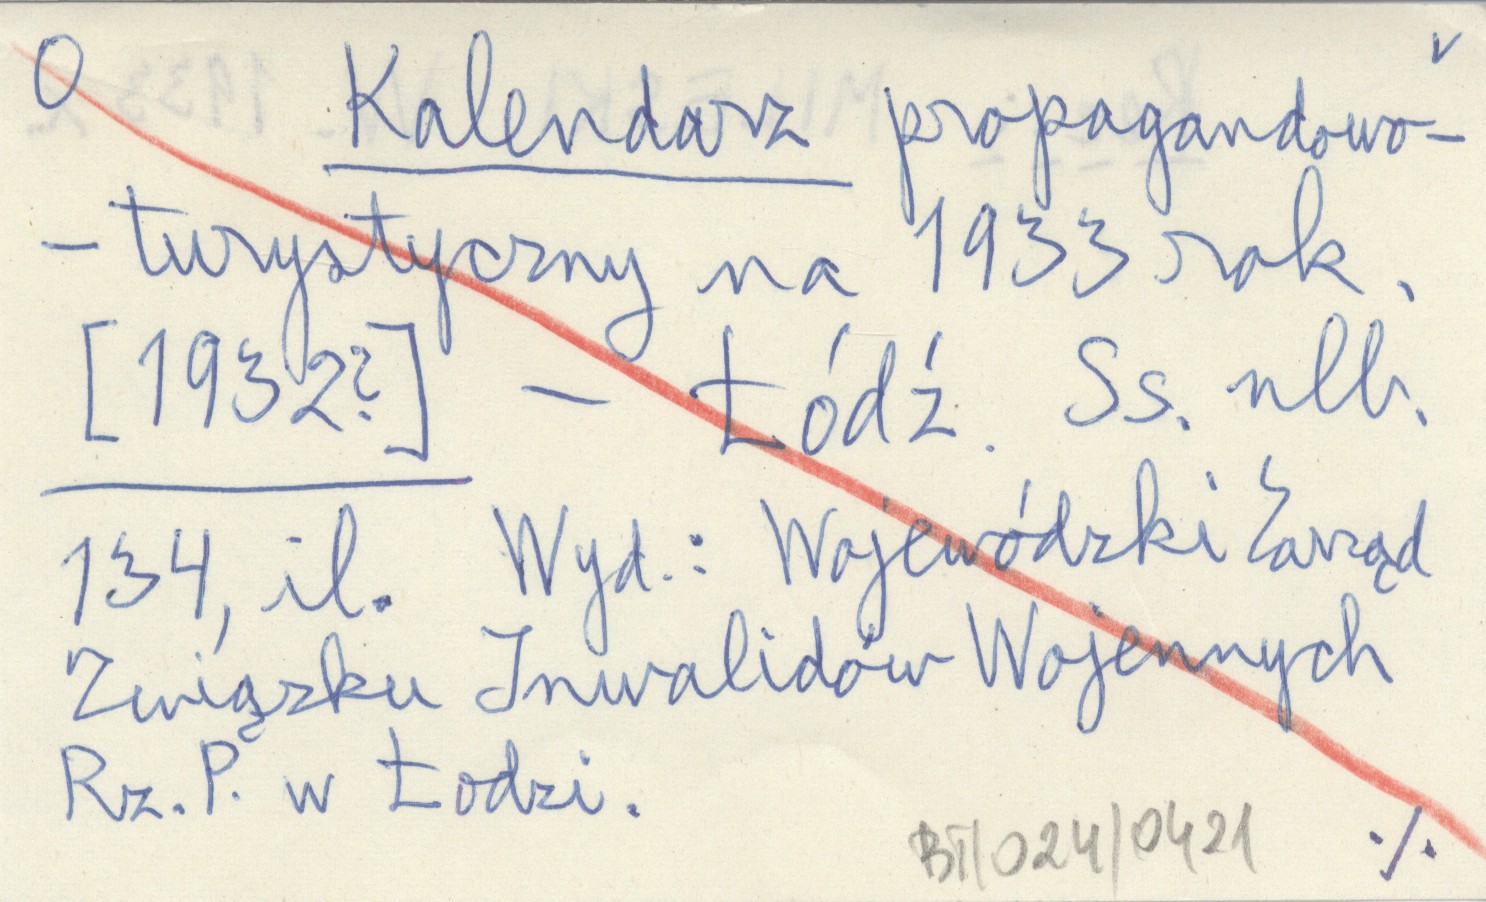 O Kalendarz propagandowo- v
- turystyczny na 1933 rok.
[1932?] - Łódź. Ss. nlb.
134, il. Wyd.: Wojewódzki Zarząd
Związku Inwalidów Wojennych
Rz. P. w Łodzi.
BT/024/0421 ./.